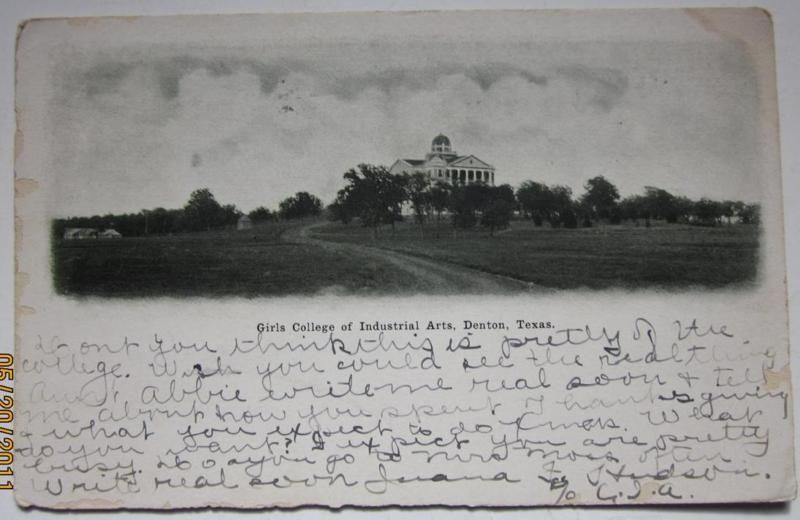 Girls College of Industrial Arts, Denton, Texas.
Dont you think this is pretty of the
college. Wish you could see the real thing
Aunt Abbie write me real soon & tell
me about how you spent Thanksgiving
& what you expect to do Xmas. What
do you want? I expect you are pretty
busy. Do you go to Mrs Moss often
Write real soon Juana Hudson.
c/o C.I.A.
05/20/2011